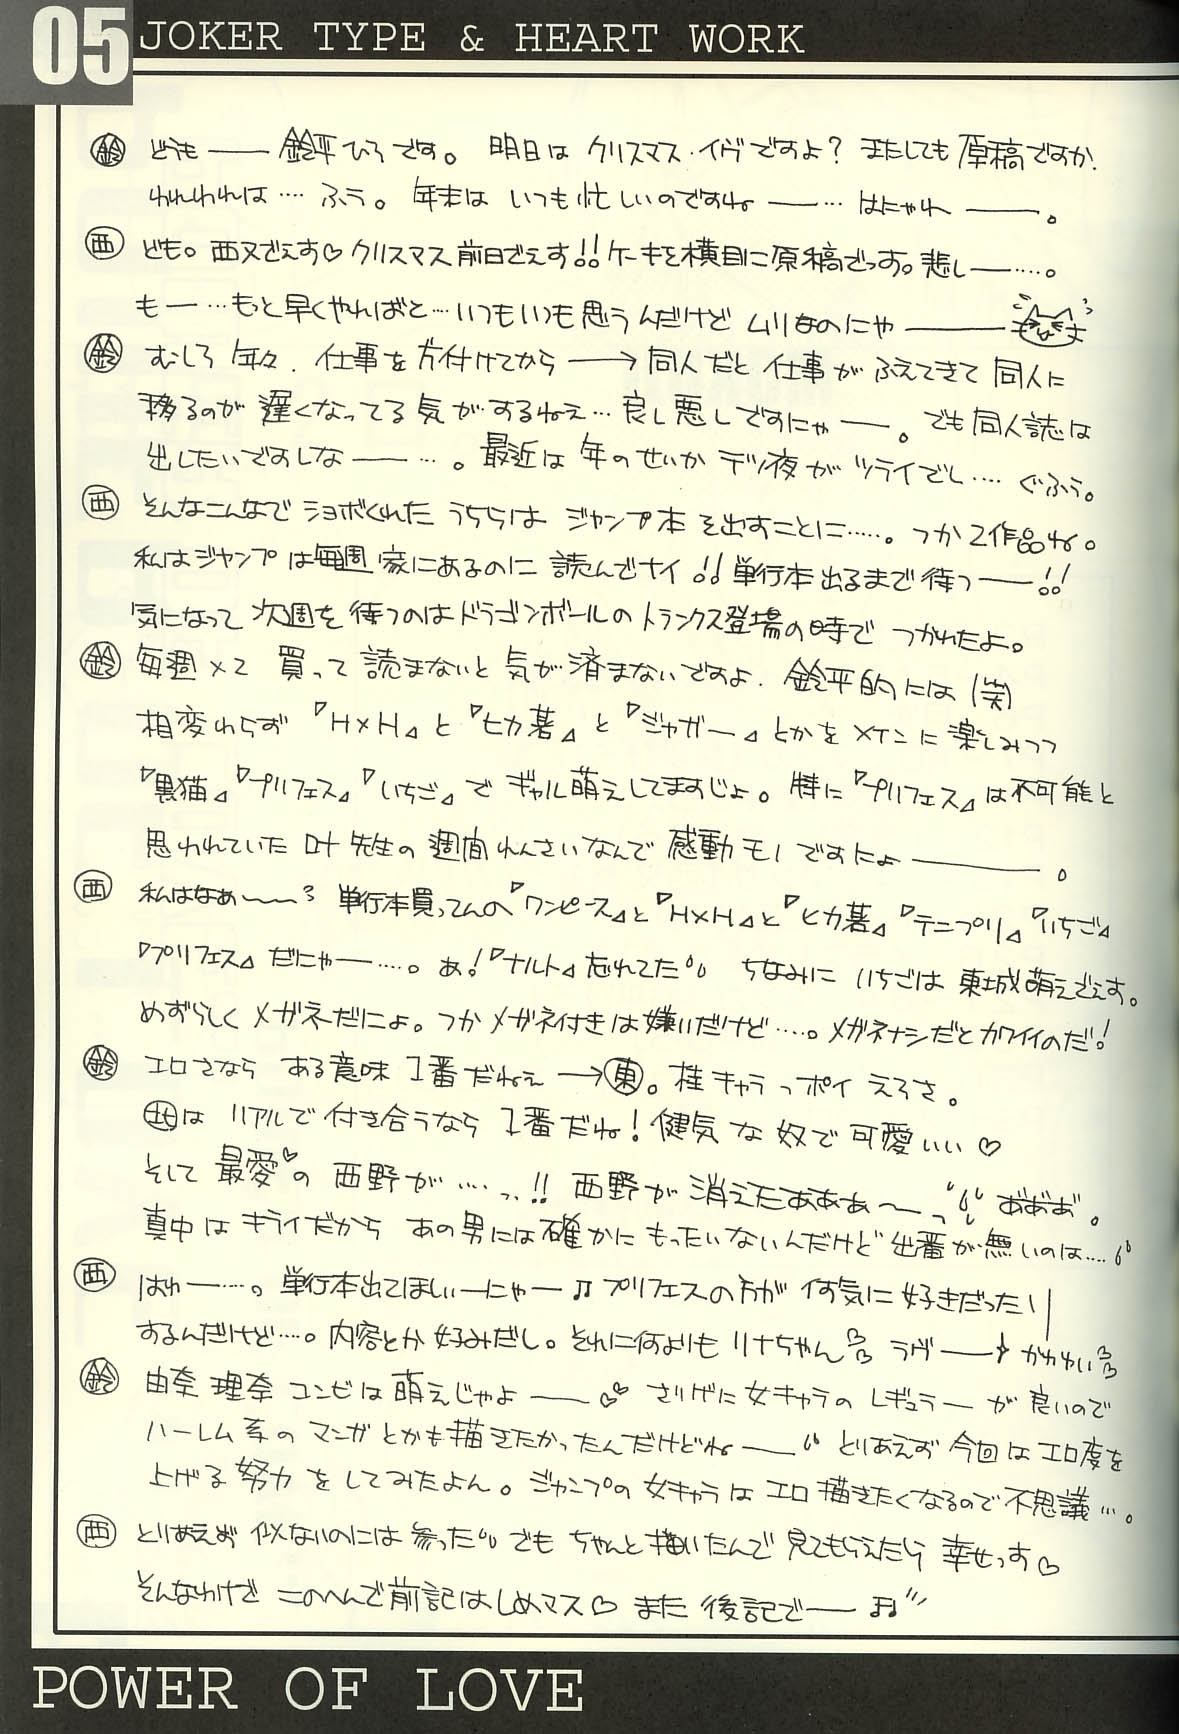 05 JOKER TYPE & HEART WORK
鈴 どうもー 鈴平ひろです。 明日は クリスマス・イヴですよ? またしても原稿ですか.
われわれは…. ふう。 年末は いつも忙しいのですねー… はにゃれー。
西 ども。西又でえす♡クリスマス前日でえす!!ケーキを横目に原稿でっす。悲しー….。
もー…もっと早くやればと…いつもいつも思うんだけど ムリなのにゃー
鈴 むしろ 年々. 仕事を片付けてから→同人だと仕事が ふえてきて 同人に
移るのが 遅くなってる気がするねえ… 良し悪しですにゃー。 でも同人誌は
出したいですしなー…。 最近は 年のせいか テツ夜が ツライでし…. ぐふう。
西 そんなこんなで ショボくれた うちらは ジャンプ本 を出すことに…‥。 つか2作品ね。
私はジャンプは毎週 家にあるのに 読んでナイ!!単行本出るまで待つー!!
気になって 次週を 待つのはドラゴンボールのトランクス登場の時で つかれたよ。
鈴 毎週×2 買って 読まないと気が済まないですよ. 鈴平的には(笑)
相変わらず 『H×H』と『ヒカ碁』と『ジャガー』とかをメインに楽しみつつ
『黒猫』『プリフェス』『いちご』で ギャル萌えしてますじょ。 特に『プリフェス』は不可能と
思われていた 叶先生の 週間れんさいなんで 感動モノですにょー。
西 私はなぁ〜〜? 単行本買ってんの『ワンピース』と『H×H』と『ヒカ碁』『テニプリ』『いちご』
『プリフェス』だにゃー….。あ!『ナルト』忘れてた ちなみに いちごは 東城萌えでえす。
めずらしく メガネだにょ。つかメガネ付きは嫌いだけど….。メガネナシだとカワイイのだ!
鈴 エロさなら ある意味 1番だねぇ→東。 桂キャラっポイ えろさ。
北は リアルで付き合うなら 1番だね!健気な奴で可愛いい♡
そして 最愛♡の 西野が…‥っ!! 西野が消えたあああ〜っ あ゛あ゛あ゛。
真中は キライだから あの男には確かに もったいないんだけど 出番が無いのは….
西 はゎー….。単行本出てほしぃーにゃー♫プリフェスの方が 何気に好きだったり
するんだけど….。内容とか好みだし。それに何よりも リナちゃん ラヴー かわゆい
鈴 由奈理奈コンビは萌えじゃよー さりげに女キャラの レギュラー が良いので
ハーレム系の マンガとかも描きたかったんだけどねー とりあえず今回はエロ度を
上げる努力をしてみたよん。ジャンプの女キャラは エロ描きたくなるので不思議…。
西 とりあえず 似ないのには 参った でも ちゃんと描いたんで見てもらえたら 幸せっす♡
そんなわけで このへんで前記はしめマス♡ また 後記でー ♫
POWER OF LOVE